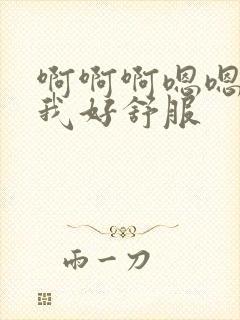 啊啊啊嗯嗯
我好舒服
雨一刀